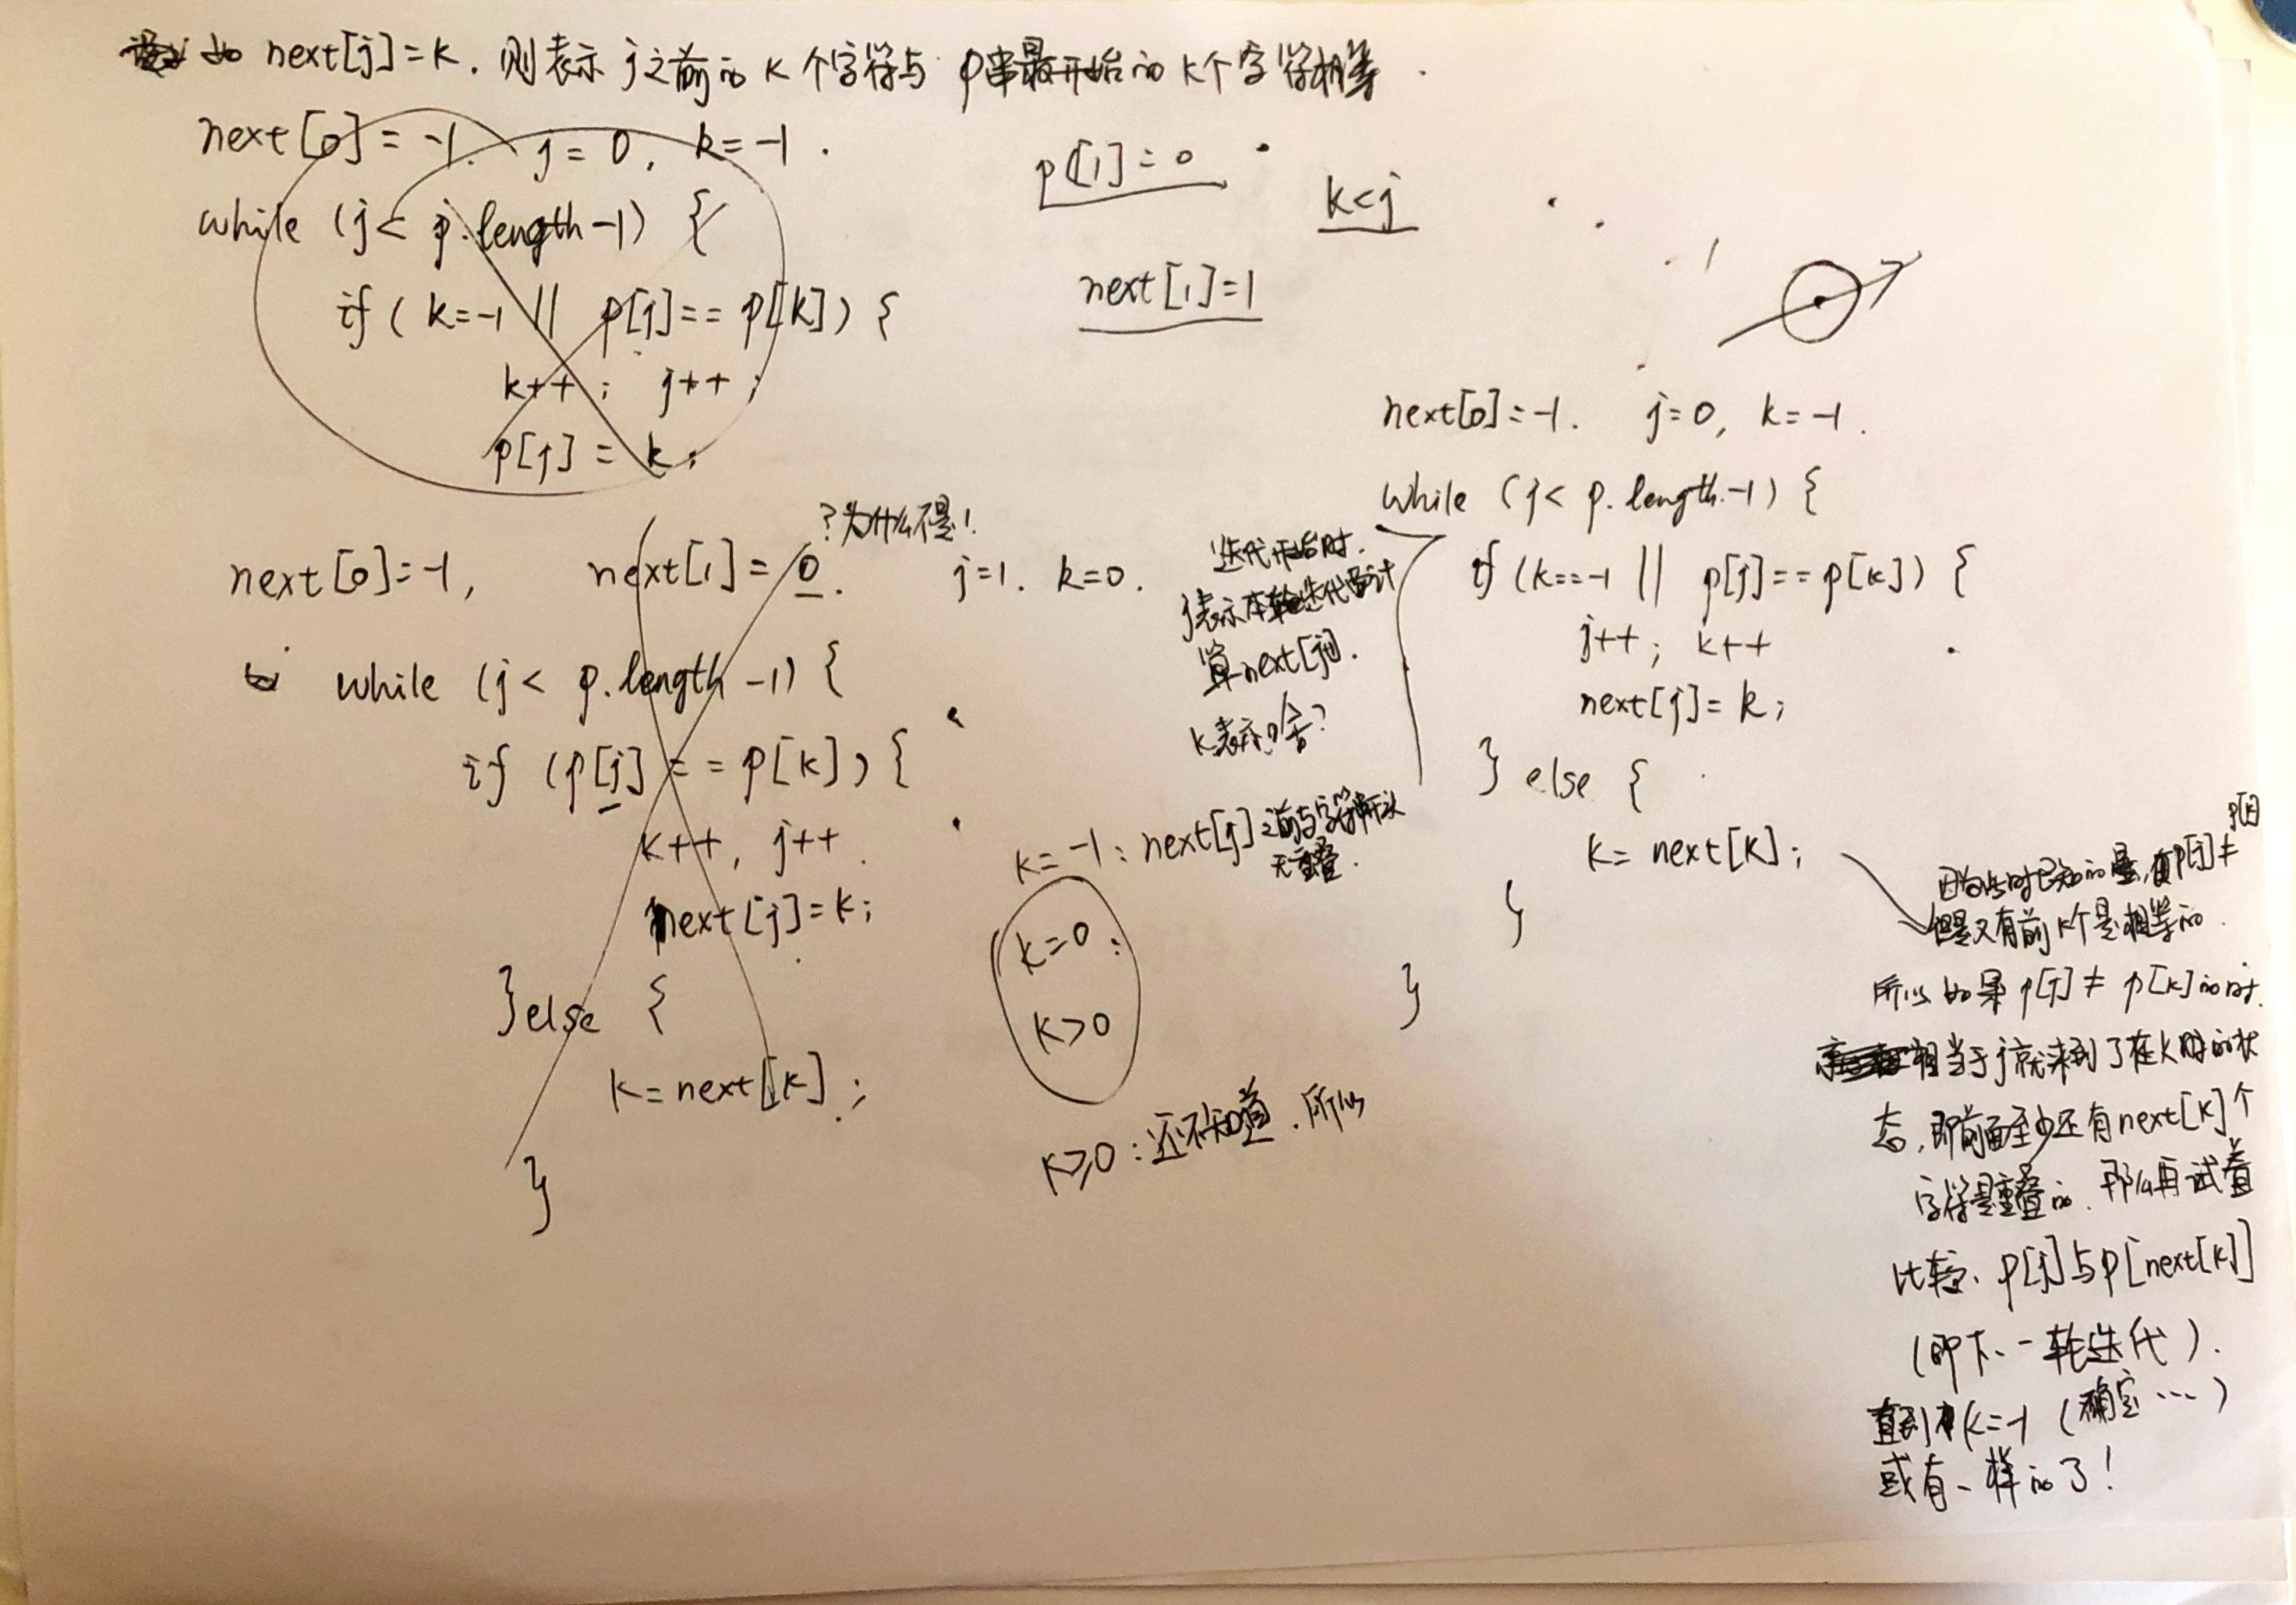 如 next[j]=k. 则表示 j之前的 k 个字符与 p串最开始的 k个字符相等.
next[0]=-1. j=0, k=-1.
while (j< p.length-1) {
if ( k=-1 || p[j]== p[k]) {
k++; j++;
p[j] = k;
p[1]=0
k<j
next[1]=1
next[0]=-1, next[1]=0. j=1. k=0.
?为什么不是1
while (j< p.length-1) {
if (p[j]==p[k]) {
k++, j++.
next[j]=k;
}else {
k=next[k];
}
迭代开始时.
j表示本轮迭代要计
算next[j].
k表示啥?
k=-1: next[j]之前与字符串
无重叠.
k=0:
k>0
k≥0: 还不知道. 所以
next[0]=-1. j=0, k=-1.
while (j< p.length-1) {
if (k==-1 || p[j]==p[k]) {
j++; k++
next[j]=k;
} else {
k= next[k];
}
}
因为此时已知的是, 有p[j]≠
p[k]
但是又有前k个是相等的.
所以如果 p[j]≠p[k]的时.
相当于j就来到了在k时的状
态, 即前面至少还有next[k]个
字符是重叠的. 那么再试着
比较. p[j]与p[next[k]]
(即下一轮迭代).
直到k=-1 (确定...)
或有一样的了!